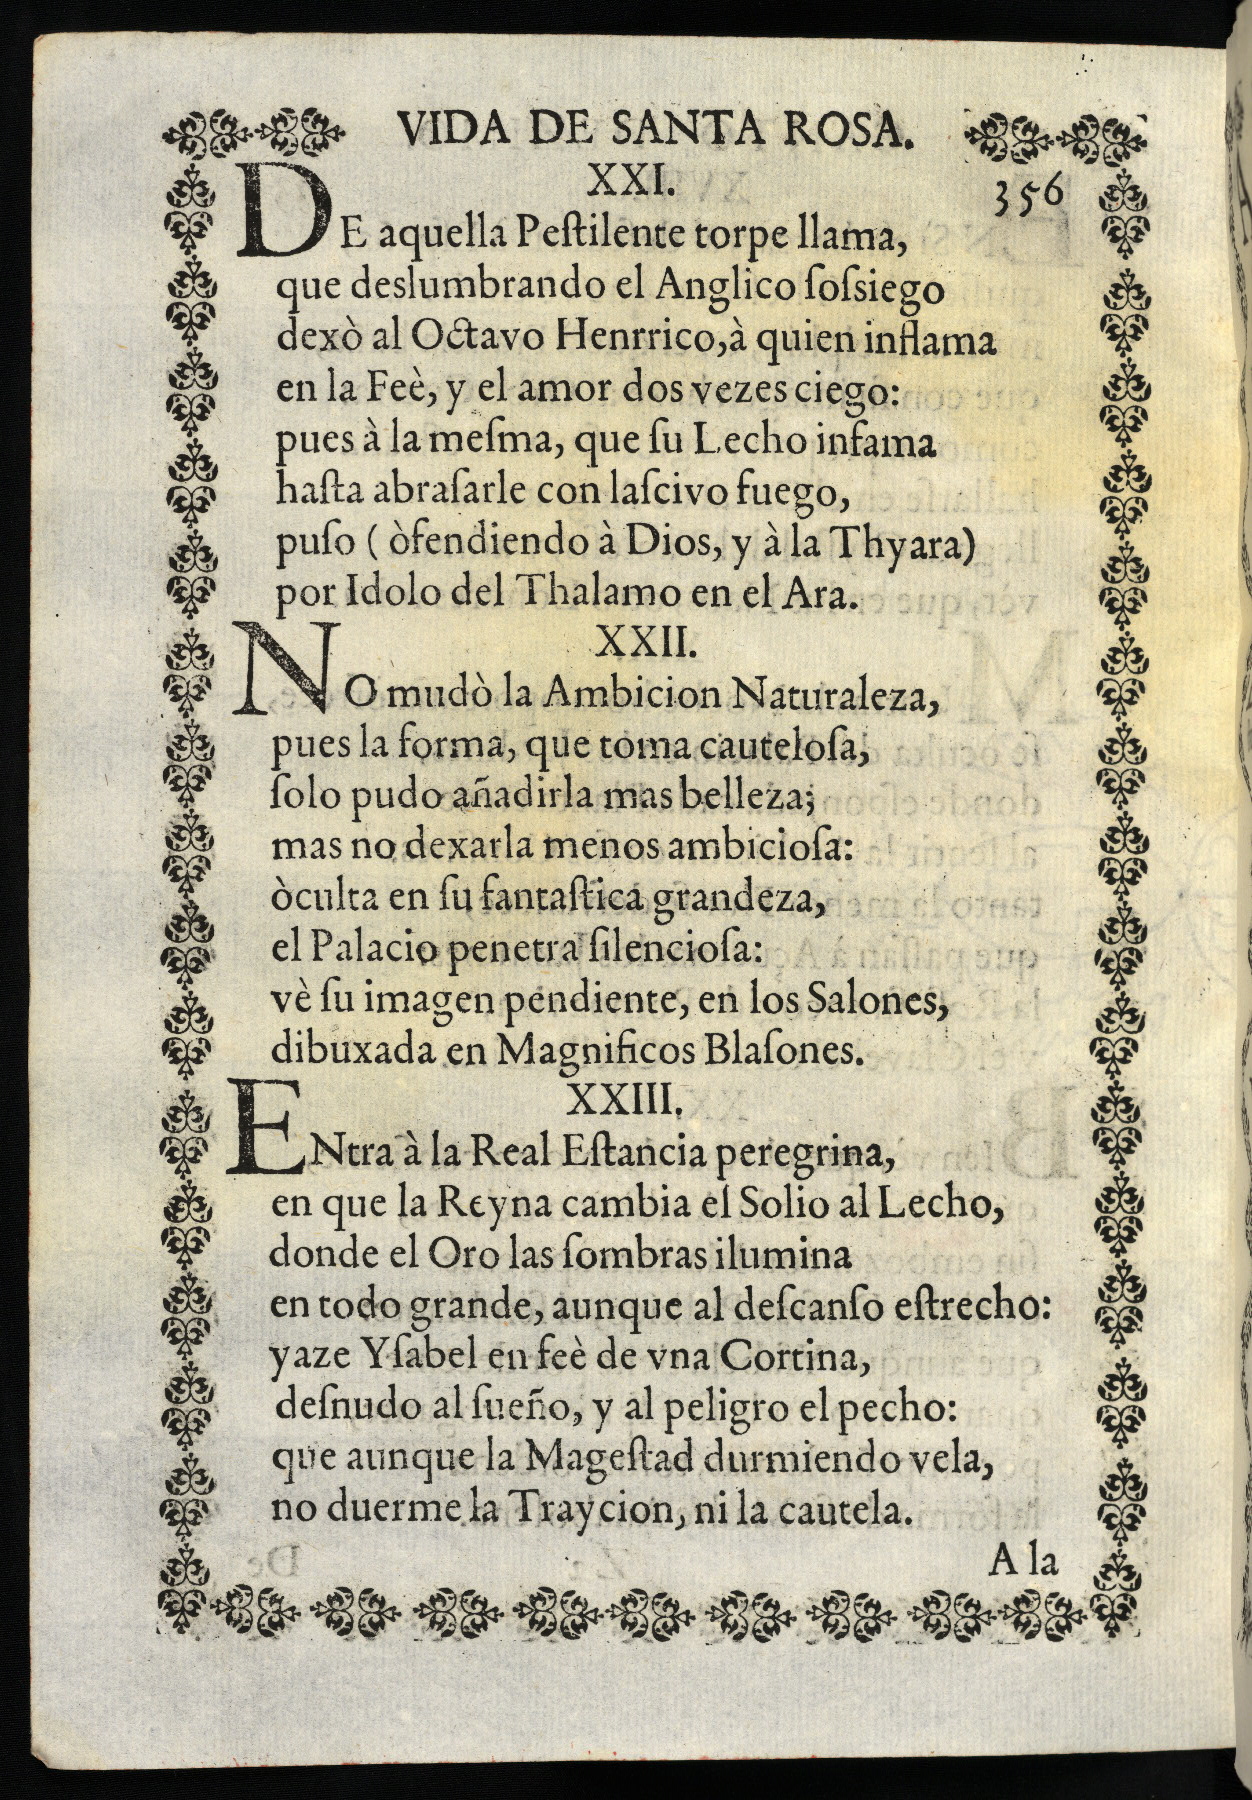 VIDA DE SANTA ROSA.
XXI.
356
DE aquella Peſtilente torpe llama,
que deslumbrando el Anglico ſoſsiego
dexò al Octavo Henrrico, à quien inflama
en la Feè, y el amor dos vezes ciego:
pues à la meſma, que ſu Lecho infama
haſta abraſarle con laſcivo fuego,
puſo ( òfendiendo à Dios, y à la Thyara)
por Idolo del Thalamo en el Ara.
XXII.
NO mudò la Ambicion Naturaleza,
pues la forma, que toma cauteloſa,
ſolo pudo añadirla mas belleza;
mas no dexarla menos ambicioſa:
òculta en ſu fantaſtica grandeza,
el Palacio penetra ſilencioſa:
vè ſu imagen pendiente, en los Salones,
dibuxada en Magnificos Blaſones.
XXIII.
ENtra à la Real Eſtancia peregrina,
en que la Reyna cambia el Solio al Lecho,
donde el Oro las ſombras ilumina
en todo grande, aunque al deſcanſo eſtrecho:
yaze Yſabel en feè de vna Cortina,
deſnudo al ſueño, y al peligro el pecho:
que aunque la Mageſtad durmiendo vela,
no duerme la Traycion, ni la cautela.
A la